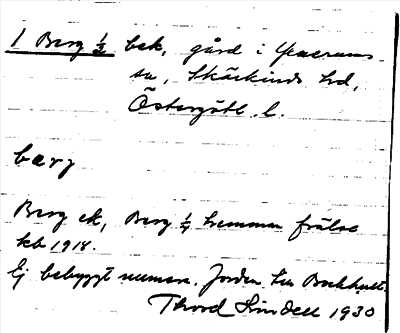 1 Berg ½ bek, gård i Yxnerums
sn, Skärkinds hd,
Östergötl. l.
bærj
Berg ek, Berg ¼ hemman frälse
kb 1918.
Ej bebyggt numera. Jorden hu Bockhult
Thord Lindell 1930